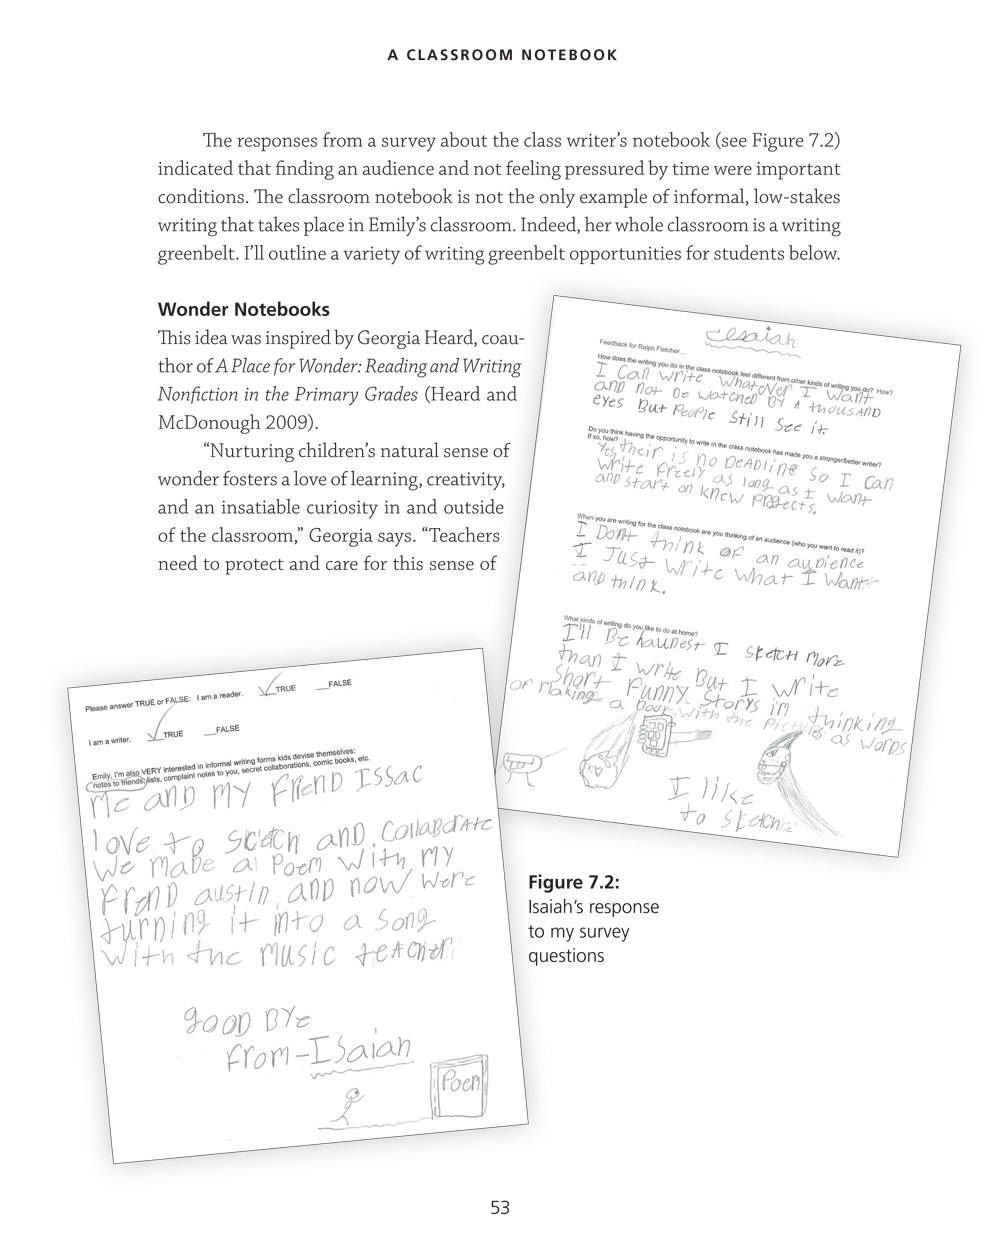 A CLASSROOM NOTEBOOK
The responses from a survey about the class writer’s notebook (see Figure 7.2)
indicated that finding an audience and not feeling pressured by time were important
conditions. The classroom notebook is not the only example of informal, low-stakes
writing that takes place in Emily’s classroom. Indeed, her whole classroom is a writing
greenbelt. I’ll outline a variety of writing greenbelt opportunities for students below.
Wonder Notebooks
This idea was inspired by Georgia Heard, coau-
thor of A Place for Wonder: Reading and Writing
Nonfiction in the Primary Grades (Heard and
McDonough 2009).
“Nurturing children’s natural sense of
wonder fosters a love of learning, creativity,
and an insatiable curiosity in and outside
of the classroom,” Georgia says. “Teachers
need to protect and care for this sense of
Isaiah
Feedback for Ralph Fletcher...
How does the writing you do in the class notebook feel different from other kinds of writing you do? How?
I Can write whatever I want
and not be watched By A thousand
eyes But People Still See it.
Do you think having the opportunity to write in the class notebook has made you a stronger/better writer?
If so, how?
Yes, their is no DeaDline So I Can
write freely as long as I want
and start on knew Projects.
When you are writing for the class notebook are you thinking of an audience (who you want to read it)?
I Dont think of an audience
I Just write what I want
and think.
What kinds of writing do you like to do at home?
I'll Be haunest I sketch more
than I write But I write
Short Funny Storys im thinking
of making a book with the pictures as words
I like
to sketch
Please answer TRUE or FALSE: I am a reader. ✓ TRUE __FALSE
I am a writer. ✓ TRUE __FALSE
Emily, I'm also VERY interested in informal writing forms kids devise themselves:
notes to friends, lists, complaint notes to you, secret collaborations, comic books, etc.
Me and my friend Issac
love to sketch and collaborate
We made a Poem with my
frend austin, and now were
turning it into a song
with the music teacher
good Bye
from-Isaiah
Poem
Figure 7.2:
Isaiah’s response
to my survey
questions
53